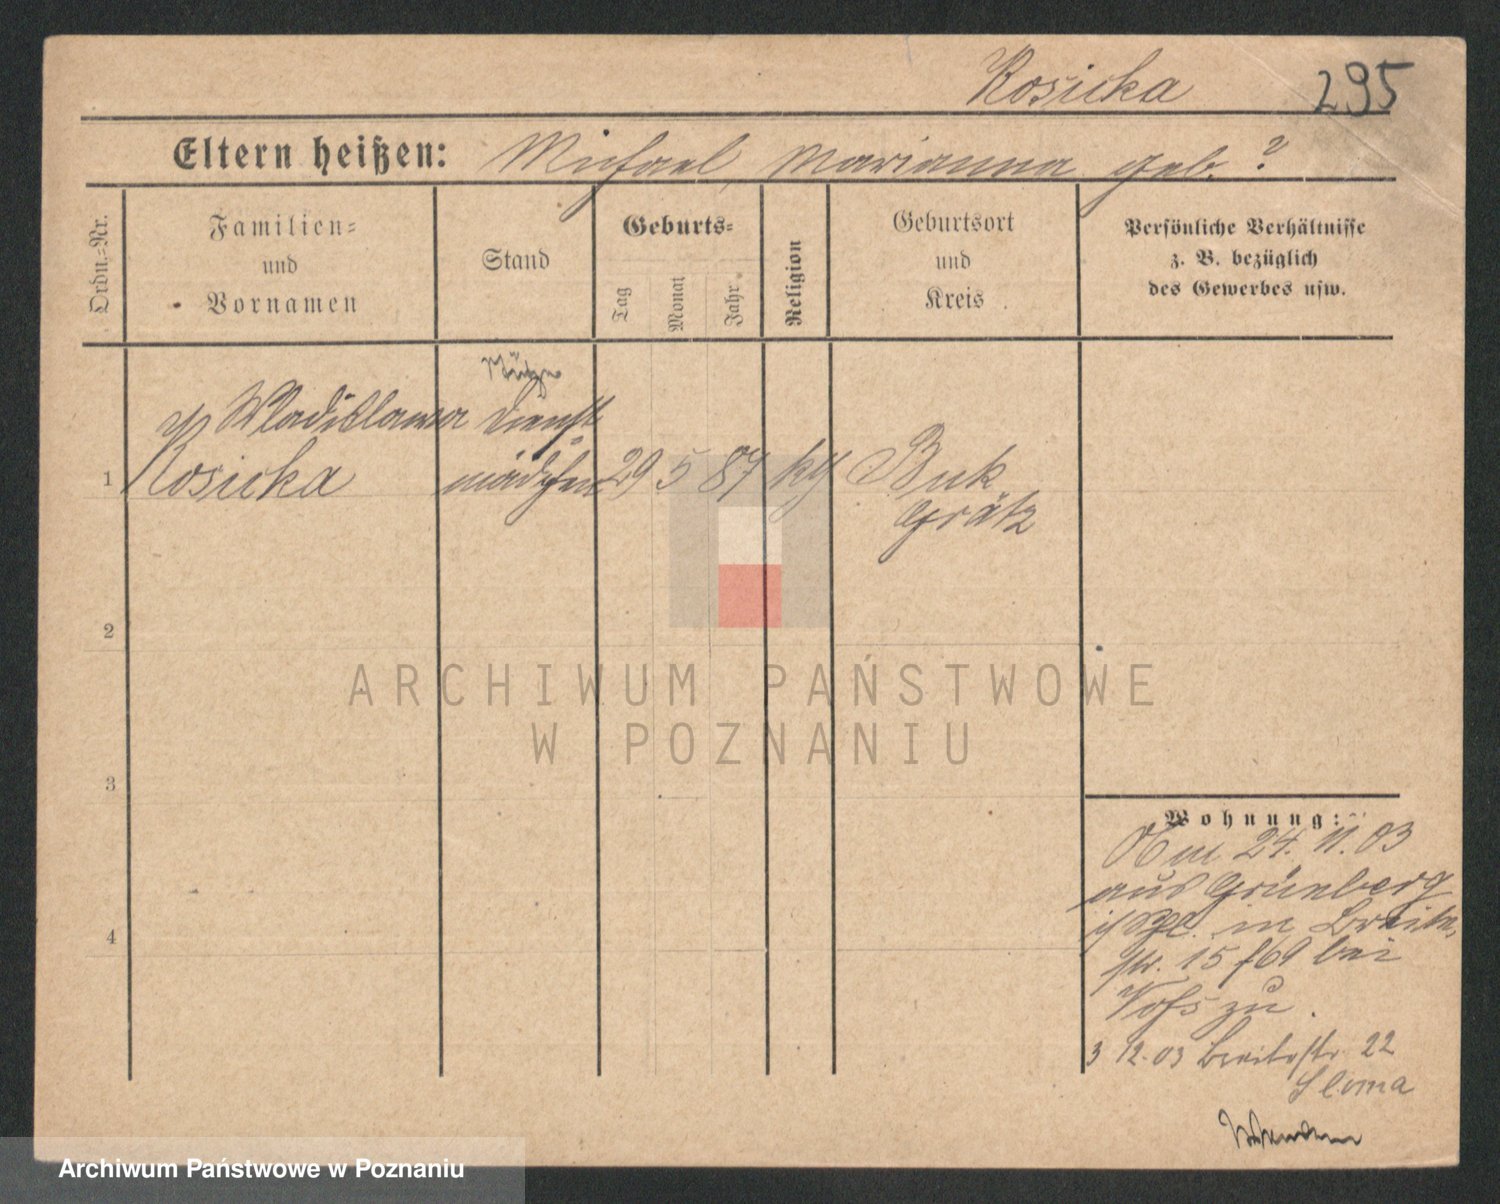 Rosicka 295
Eltern heißen: Michael, Marianna geb. ?
Ordn.=Nr.
Familien=
und
Vornamen
Stand
Geburts=
Tag
Monat
Jahr
Religion
Geburtsort
und
Kreis
Persönliche Verhältnisse
z. B. bezüglich
des Gewerbes usw.
Wladislawa Dienst
1 Rosicka mädchen 29 5 87 kth Buk
Grätz
2
3
4
Wohnung:
Am 24. 11. 03
aus Grünberg
in Breite
str. 15 bei
Voss zu.
3 12. 03 Breitestr. 22
Sloma
ARCHIWUM PAŃSTWOWE
W POZNANIU
Archiwum Państwowe w Poznaniu